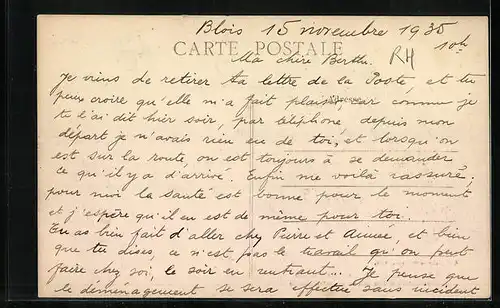 Blois 15 novembre 1935
CARTE POSTALE
10h
Ma chère Berthe. RH
Je viens de retirer ta lettre de la Poste, et tu
peux croire qu'elle m'a fait plaisir, car comme je
t'ai dit hier soir, par téléphone, depuis mon
départ je n'avais rien eu de toi, et lorsqu'on
est sur la route, on est toujours à se demander
ce qu'il y a d'arrivé. Enfin me voilà rassuré.
pour moi la santé est bonne pour le moment
et j'espère qu'il en est de même pour toi.
Tu as bien fait d'aller chez Pierre et Aimée, et bien
que tu dises, ce n'est pas le travail qu'on peut
faire chez soi, le soir en rentrant... Je pense que
le déménagement se sera effectué sans incident